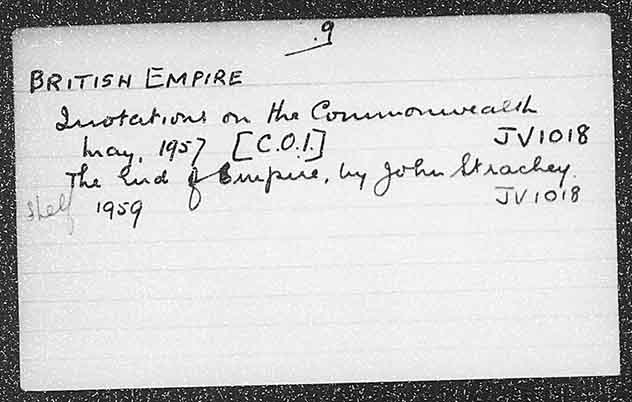 .9
BRITISH EMPIRE
Quotations on the Commonwealth
May, 1957 [C.O.I.] JV1018
The End of Empire, by John Strachey.
shelf 1959 JV1018